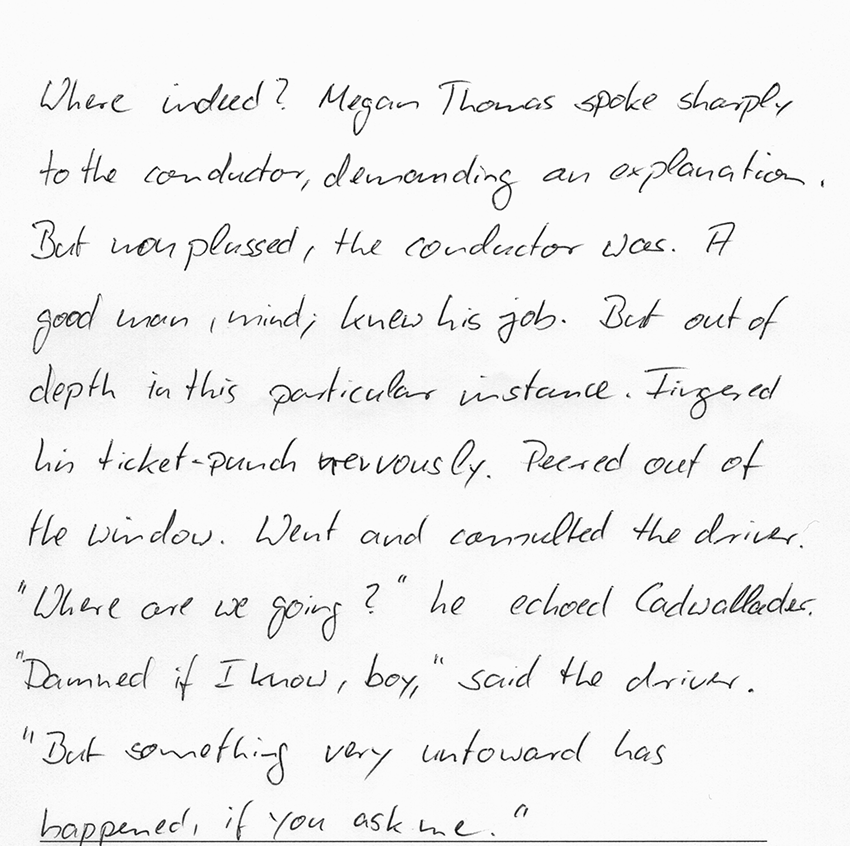 Where indeed? Megan Thomas spoke sharply
to the conductor, demanding an explanation.
But nonplussed, the conductor was. A
good man, mind; knew his job. But out of
depth in this particular instance. Fingered
his ticket-punch nervously. Peered out of
the window. Went and consulted the driver.
"Where are we going?" he echoed Cadwallader.
"Damned if I know, boy," said the driver.
"But something very untoward has
happened, if you ask me."